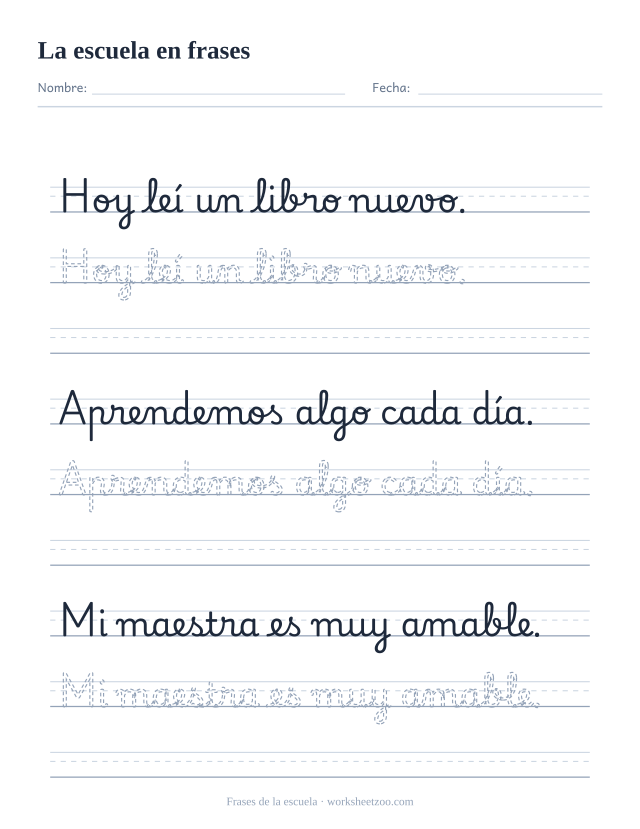 La escuela en frases
Nombre: Fecha:
Hoy leí un libro nuevo.
Hoy leí un libro nuevo.
Aprendemos algo cada día.
Aprendemos algo cada día.
Mi maestra es muy amable.
Mi maestra es muy amable.
Frases de la escuela · worksheetzoo.com